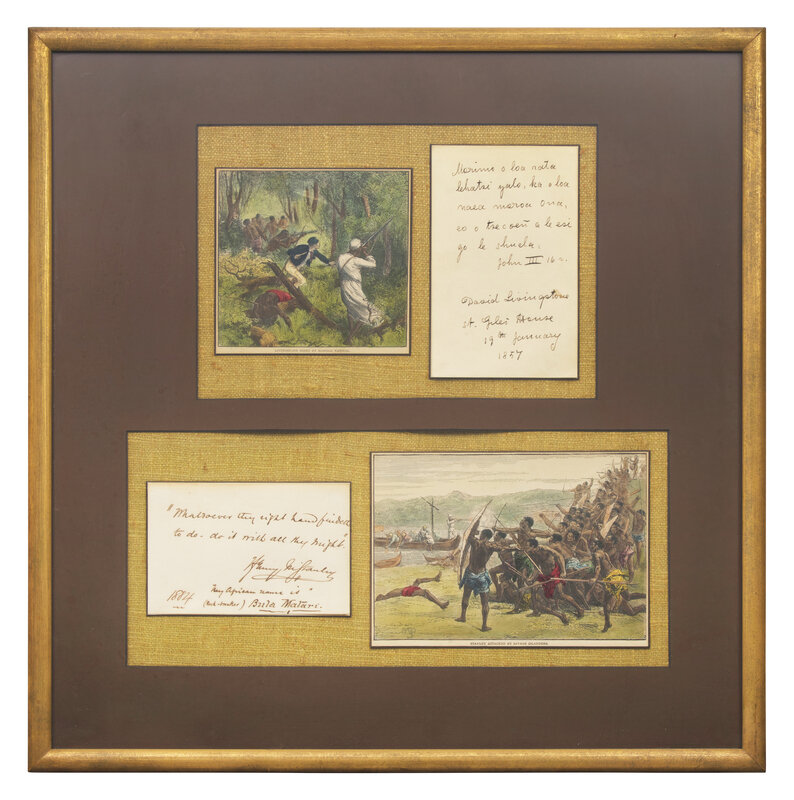 Morimo o loa rata
lehatsi yalo, ka o loa
naea moroa ona,
eo o tsecoeñ a le esi
go le shuela,
John III 16 v.
David Livingstone
St. Giles House
19th January
1857
STANLEY ATTACKED BY SAVAGE ISLANDERS.
"Whatsoever thy right hand findeth
to do - do it with all thy might".
Henry M Stanley
1884
"My African name is"
(Rock-breaker) Bula Matari.